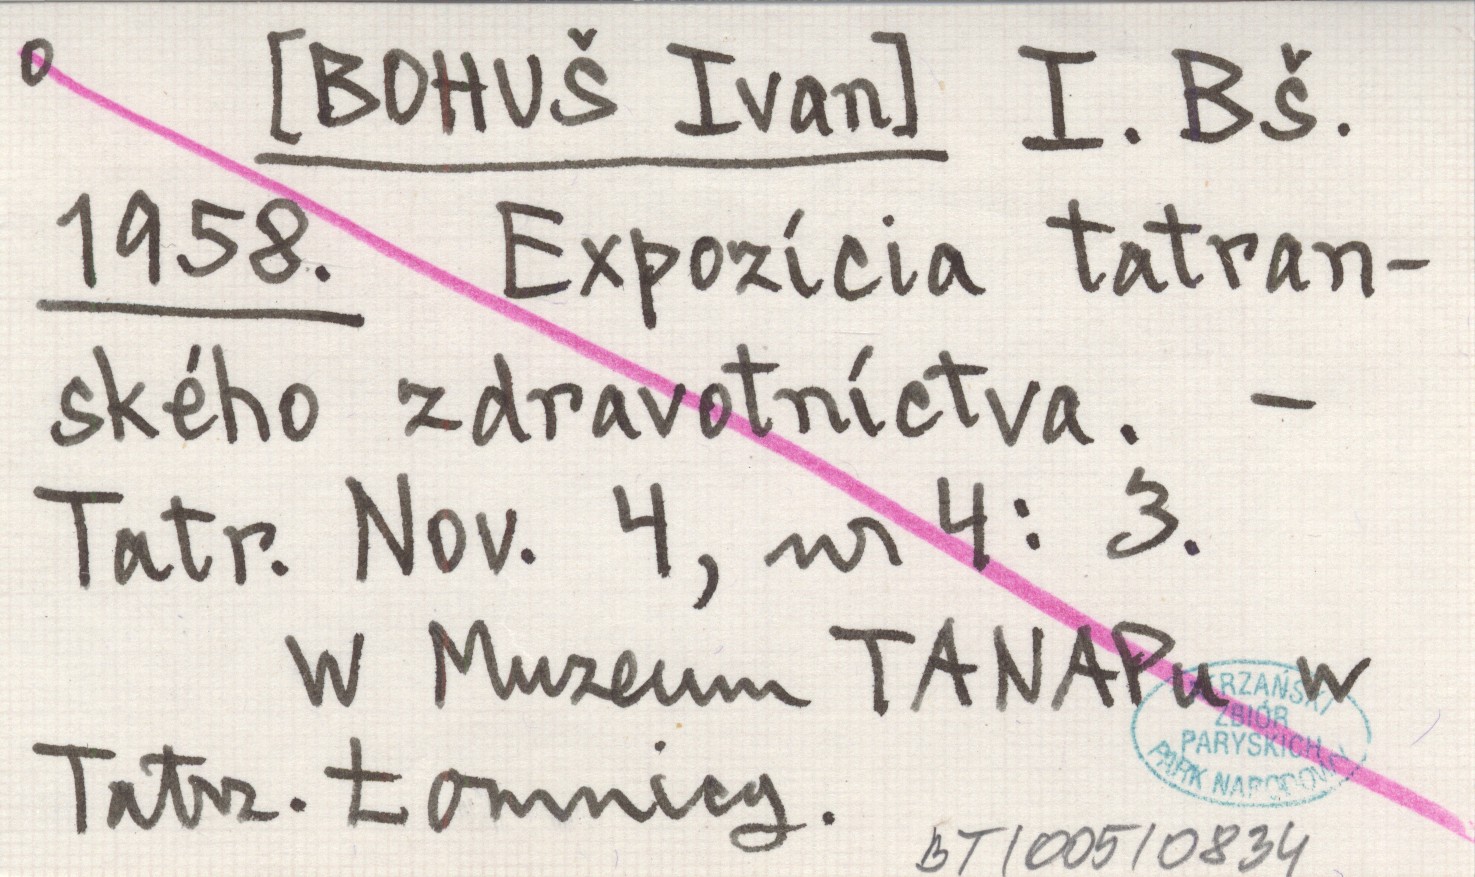 o [BOHUŠ Ivan] I. Bš.
1958. Expozícia tatran-
ského zdravotníctva. -
Tatr. Nov. 4, nr 4: 3.
w Muzeum TANAPu w
Tatrz. Łomnicy.
ZBIÓR
PARYSKICH
PARK NARODOWY
BT/005/0834